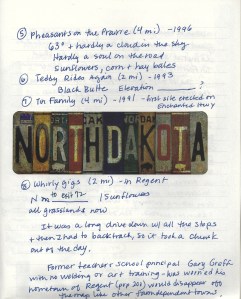 ⑤ Pheasants on the Prairie (4 mi) - 1996
63° + hardly a cloud in the sky
Hardly a soul on the road
Sunflowers, corn + hay bales
⑥ Teddy Rides Again (2 mi) - 1993
Black Butte Elevation ?
⑦ Tin Family (4 mi) - 1991 - first site erected on
Enchanted Hwy
NORTH DAKOTA
⑧ Whirly gigs (2 mi) - in Regent
N to exit 72 / Sunflowers
all grasslands now
It was a long drive down w/ all the stops
+ then I had to backtrack, so it took a chunk
out of the day.
Former teacher + school principal Gary Greff
with no welding or art training - was worried his
hometown of Regent (pop 200) would disappear off
the map like other farm dependent towns,